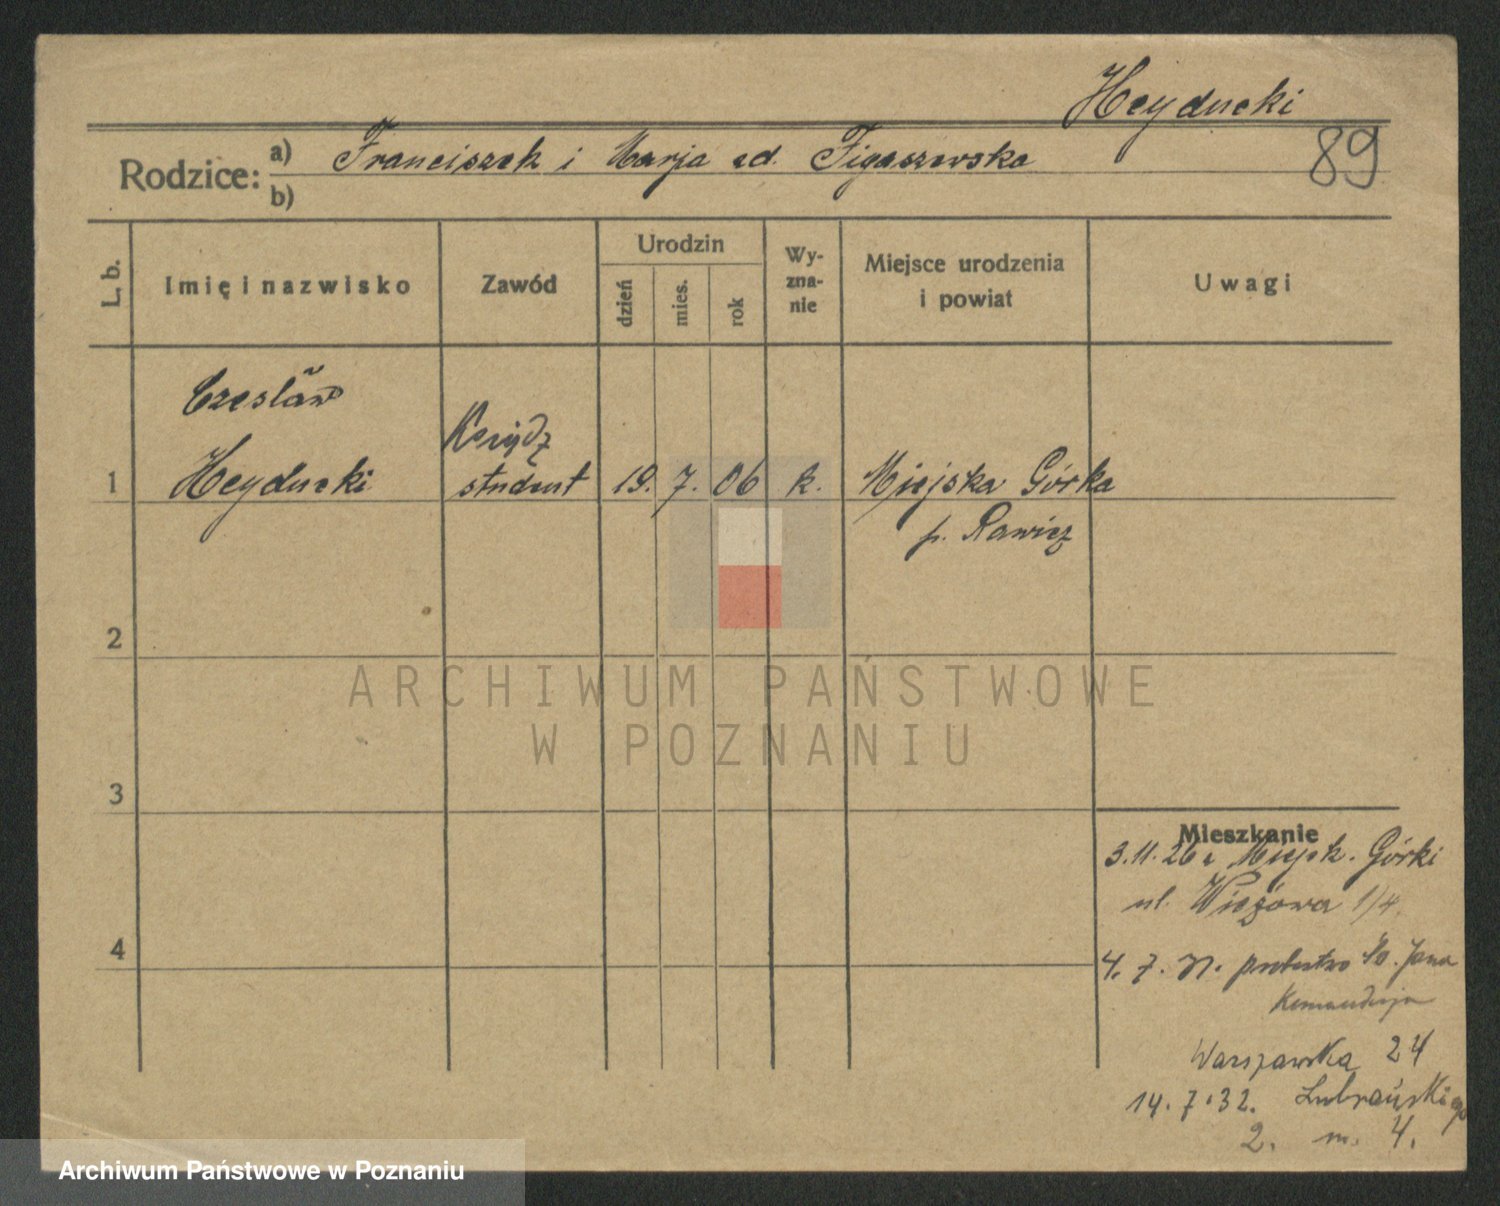 Heyducki
89
Rodzice: a) Franciszek i Marja Figaszewska
b)
L. b.
Imię i nazwisko
Zawód
Urodzin
dzień
mies.
rok
Wy-
zna-
nie
Miejsce urodzenia
i powiat
Uwagi
Czesław
Ksiądz
1 Heyducki student 19. 7. 06 k. Miejska Górka
p. Rawicz
2
3
4
Mieszkanie
3.11.26 z Miejsk. Górki
ul. 1/4
4. 7. probostwo Św. Jana
Komandorja
Warszawska 24
14.7.32. Lubrańskiego
2. m. 4.
ARCHIWUM PAŃSTWOWE
W POZNANIU
Archiwum Państwowe w Poznaniu